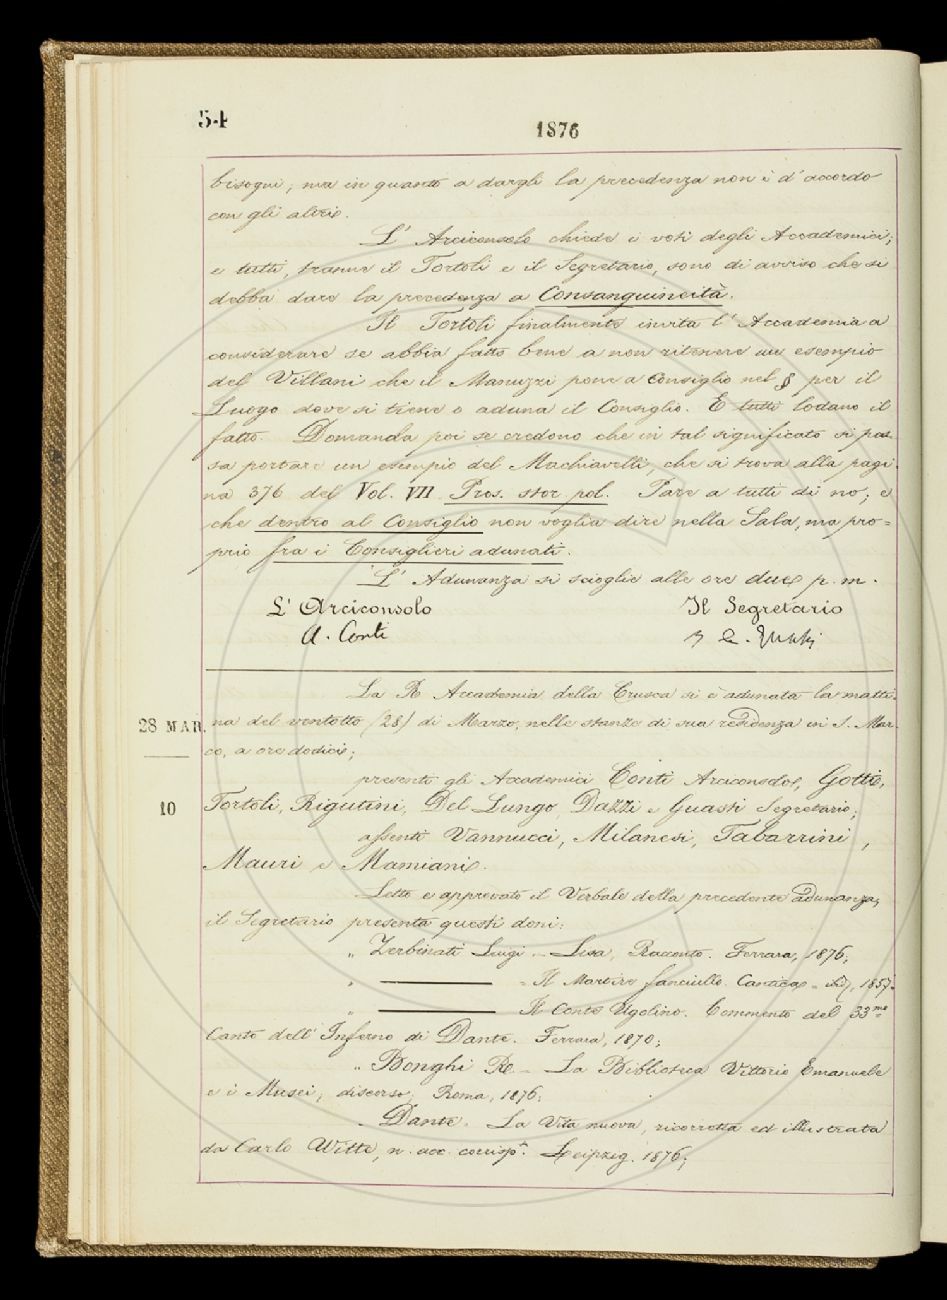 54
1876
bisogni; ma in quanto a dargli la precedenza non è d'accordo
con gli altri.
L' Arciconsolo chiede i voti degli Accademici;
e tutti, tranne il Tortoli e il Segretario, sono di avviso che si
debba dare la precedenza a Consanguineità.
Il Tortoli finalmente invita l' Accademia a
considerare se abbia fatto bene a non ritenere un esempio
del Villani che il Manuzzi pone a Consiglio nel § per il
Luogo dove si tiene o aduna il Consiglio. E tutti lodano il
fatto. Domanda poi se credono che in tal significato si pos
sa portare un esempio del Machiavelli, che si trova alla pagi
na 376 del Vol. VII Pros. stor. pol. Pare a tutti di no; e
che dentro al Consiglio non voglia dire nella Sala, ma pro=
prio fra i Consiglieri adunati.
L' Adunanza si scioglie alle ore due p. m.
L' Arciconsolo Il Segretario
A. Conti
La R. Accademia della Crusca si è adunata la matti-
28 MAR. na del ventotto (28) di Marzo, nelle stanze di sua residenza in S. Mar
co, a ore dodici;
presenti gli Accademici Conti Arciconsolo, Gotti,
10 Tortoli, Rigutini, Del Lungo, Dazzi e Guasti Segretario;
assenti Vannucci, Milanesi, Tabarrini,
Mauri e Mamiani.
Letto e approvato il Verbale della precedente adunanza,
il Segretario presenta questi doni:
„ Zerbinati Luigi - Lisa, Racconto. Ferrara, 1876;
„ — - Il Martire fanciullo. Cantica - ivi, 1857.
„ — Il Conte Ugolino. Commento del 33mo
Canto dell' Inferno di Dante. Ferrara, 1870;
„ Bonghi R. - La Biblioteca Vittorio Emanuele
e i Musei, discorso, Roma, 1876;
Dante. - La Vita nuova, ricorretta ed illustrata
da Carlo Witte, n. acc. corrisp.te Leipzig. 1876;